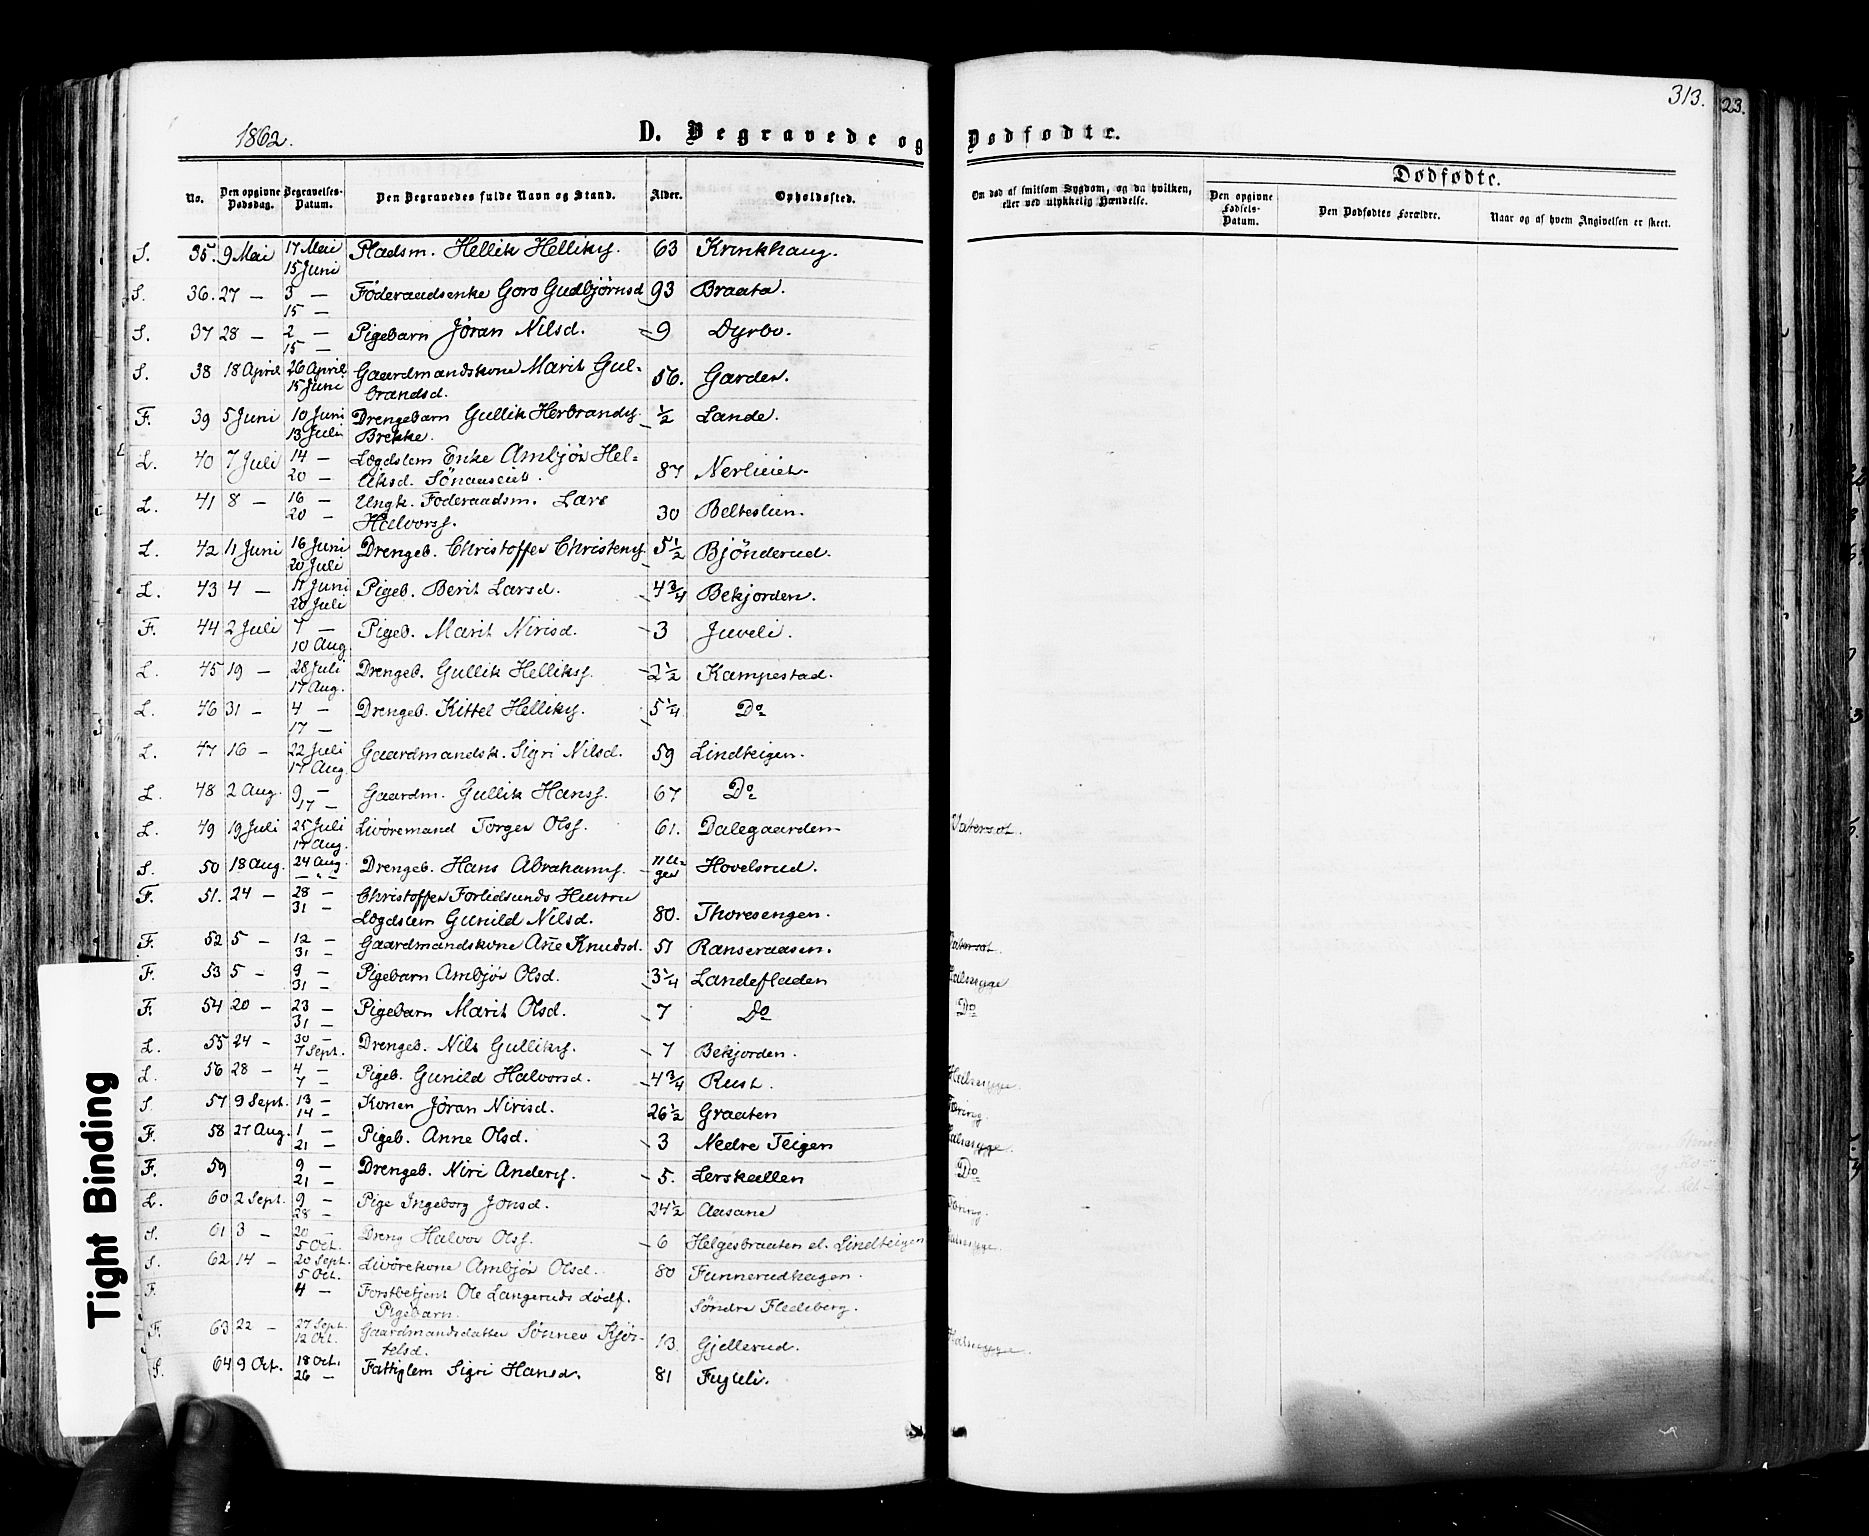 1862.
D. Begravede og Dødfødte.
313.
23.
No. | Den opgivne Dødsdag. | Begravelses-Datum. | Den Begravedes fulde Navn og Stand. | Alder. | Opholdssted. | Om død af smitsom Sygdom, og da hvilken, eller ved ulykkelig Hændelse. | Dødfødte. | Den opgivne Fødsels-Datum. | Den Dødfødtes Forældre. | Naar og af hvem Angivelsen er skeet.
S. 35. 9 Mai 17 Mai 15 Juni Pladsm. Hellik Helliks. 63 Krinkhaug.
S. 36. 27 – 3 – 15 – Föderaadsenke Goro Gudbjørnsd 93 Braata.
S. 37 28 – 2 – 15 – Pigebarn Jøran Nilsd. 9 Dyrbo.
S. 38 18 April 26 April 15 Juni Gaardmandskone Marit Gul-
brandsd. 56. Garden.
F. 39 5 Juni 10 Juni 13 Juli Drengebarn Gullik Herbrands.
Brekke. ½ Lande.
L. 40 7 Juli 14 – 20 – Lægdslem Enke Ambjør Hel-
liksd. 87 Nerlieiet.
L. 41 8 – 16 – 20 – Ungk. Foderaadsm. Lars
Halvorss. 30 Belteslien.
L. 42 11 Juni 16 Juni 20 Juli Drengeb. Christoffer Christens. 5½ Bjönderud.
L. 43 4 – 17 Juni 20 Juli Pigeb. Berit Larsd. 4¾ Bekjorden.
F. 44 2 Juli 7 – 10 Aug Pigeb. Marit Nirisd. 3 Juveli.
L. 45 19 – 28 Juli 17 Aug. Drengeb. Gullik Hellikss. 2½ Kampestad.
L. 46 31 – 4 – 17 – Drengeb. Kittel Helliks. 5¼ Do
L. 47 16 – 22 Juli 17 Aug. Gaardmandsk. Sigri Nilsd. 59 Lindteigen.
L. 48 2 Aug. 9 – 17 – Gaardm. Gullik Hanss. 67 Do
L. 49 19 Juli 25 Juli 17 Aug. Livøremand Torger Olss. 61. Dalegaarden Vatersot.
S. 50 18 Aug. 24 Aug. – " – Drengeb. Hans Abrahams. 11 U-
ger Hovelsrud.
F. 51. 24 – 28 – 31 – Christoffer Forlidsunds Hustru
Lægdslem Gunild Nilsd. 80. Thoresengen.
F. 52 5 – 12 – 31 – Gaardmandskone Ane Knudsd. 51 Ranseraasen. Vatersot.
F. 53 5 – 9 – 31 – Pigebarn Ambjør Olsd. 3¼ Landefladen Halssyge
F. 54 20 – 23 – 31 – Pigebarn Marit Olsd. 7 Do Do
L. 55 24 – 30 – 7 Sept. Drengeb. Nils Gulliks. 7 Bekjorden.
L. 56 28 – 4 – 7 – Pigeb. Gunild Halvorsd. 4¾ Rust. Halssyge.
S. 57 9 Sept. 13 – 14 – Konen Jøran Nirisd. 26½ Graaten Tæring
F. 58 27 Aug. 1 – 21 – Pigeb. Anne Olsd. 3 Nedre Teigen Halssyge.
F. 59 9 – 21 – Drengeb. Niri Anders. 5. Lerskallen Do
L. 60 2 Sept. 9 – 28 – Pige Ingeborg Jonsd. 24½ Aasane Tæring.
S. 61 3 – 20 – 5 Oct. Dreng Halvor Olss. 6 Helgesbraaten el. Lindteigen Halssyge.
S. 62 14 – 20 Sept. 5 Oct. Livörekone Ambjør Olsd. 80 Funnerudhagen.
F. 4 – Forstbetjent Ole Langeruds dødf.
Pigebarn. Søndre Flesberg.
F. 63 22 – 27 Sept. 12 Oct. Gaardmandsdatter Sønnev Kjøs-
telsd. 13. Gjellerud. Halssyge.
S. 64 9 Oct. 18 Oct. 26 – Fattiglem Sigri Hansd. 81 Fugleli.
Tight Binding